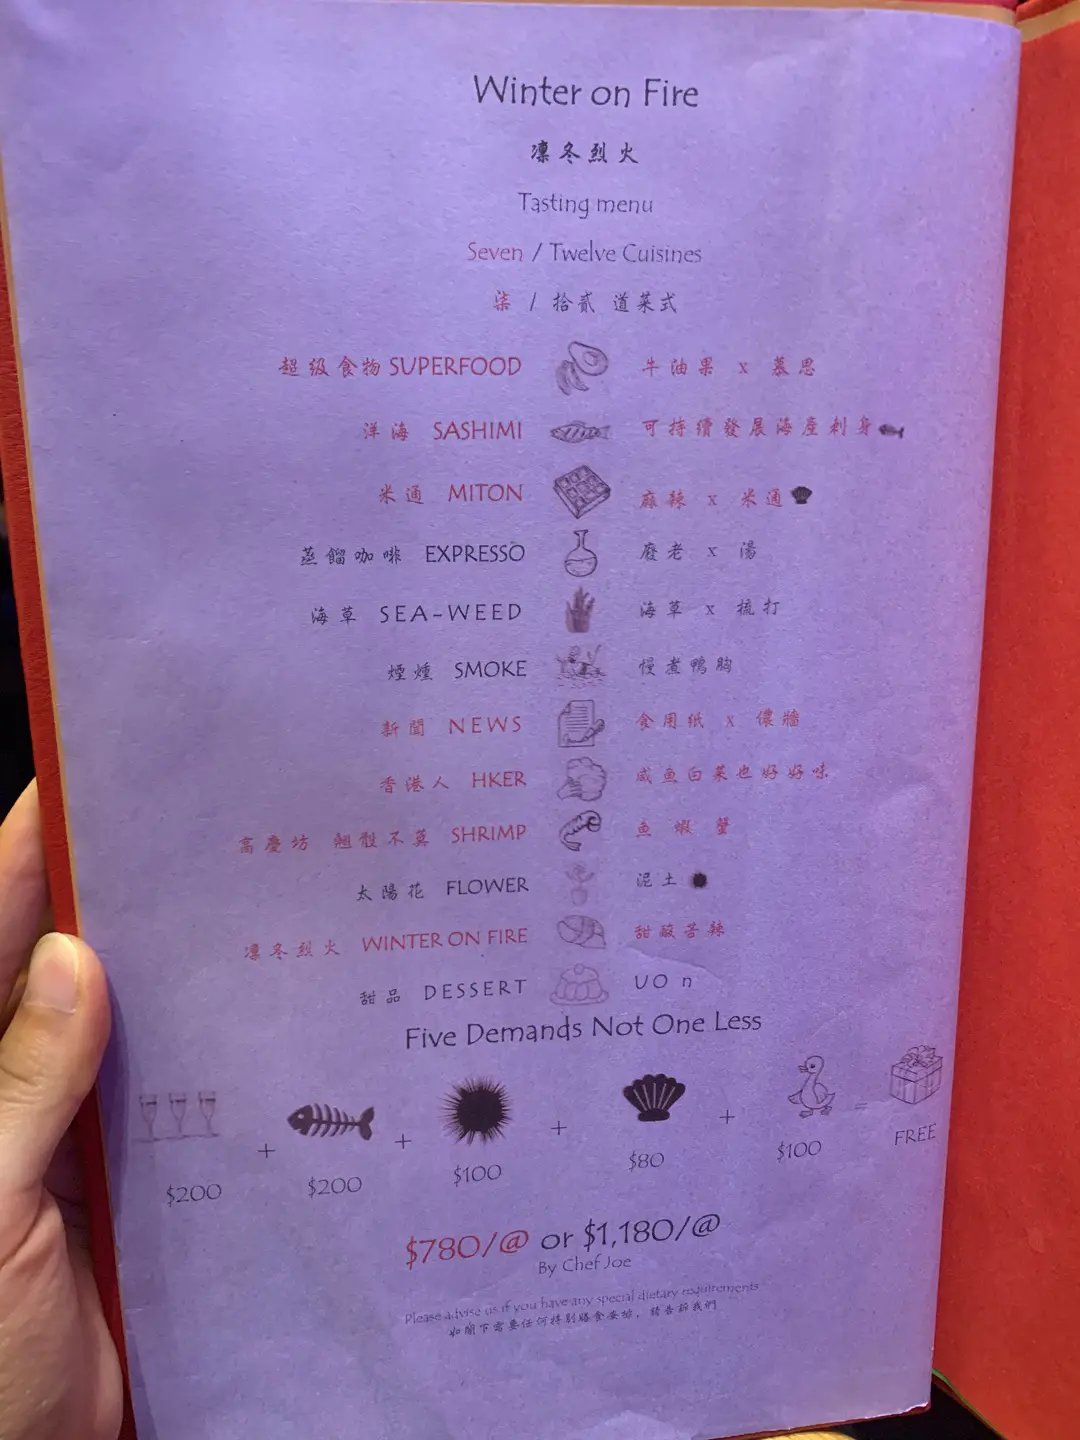 Winter on Fire
凛冬烈火
Tasting menu
Seven / Twelve Cuisines
柒 / 拾貳 道菜式
超级食物 SUPERFOOD 牛油果 x 慕思
洋海 SASHIMI 可持續發展海產刺身
米通 MITON 麻辣 x 米通
蒸餾咖啡 EXPRESSO 廢老 x 湯
海草 SEA-WEED 海草 x 梳打
煙燻 SMOKE 慢煮鴨胸
新聞 NEWS 食用纸 x
香港人 HKER 咸鱼白菜也好好味
高慶坊 翹骰不莫 SHRIMP 鱼 蝦 蟹
太陽花 FLOWER 泥土
凛冬烈火 WINTER ON FIRE 甜酸苦辣
甜品 DESSERT UO n
Five Demands Not One Less
+ + + + =
$200 $200 $100 $80 $100 FREE
$780/@ or $1,180/@
By Chef Joe
Please advise us if you have any special dietary requirements
如閣下需要任何特別膳食安排，請告訴我們